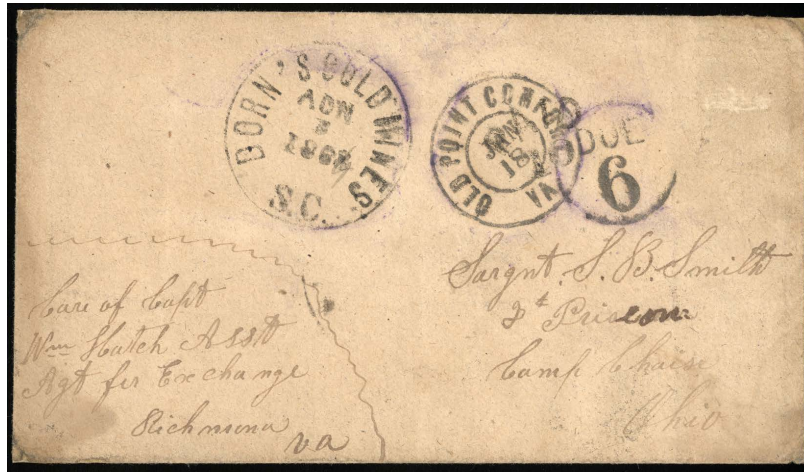 DORN'S GOLD MINES
S.C.
OLD POINT COMFORT VA
DUE
6
Sargnt. S. B. Smith
Prison
Camp Chase
Ohio
Care of Capt
Wm Hatch Asst
Agt for Exchange
Richmond
Va